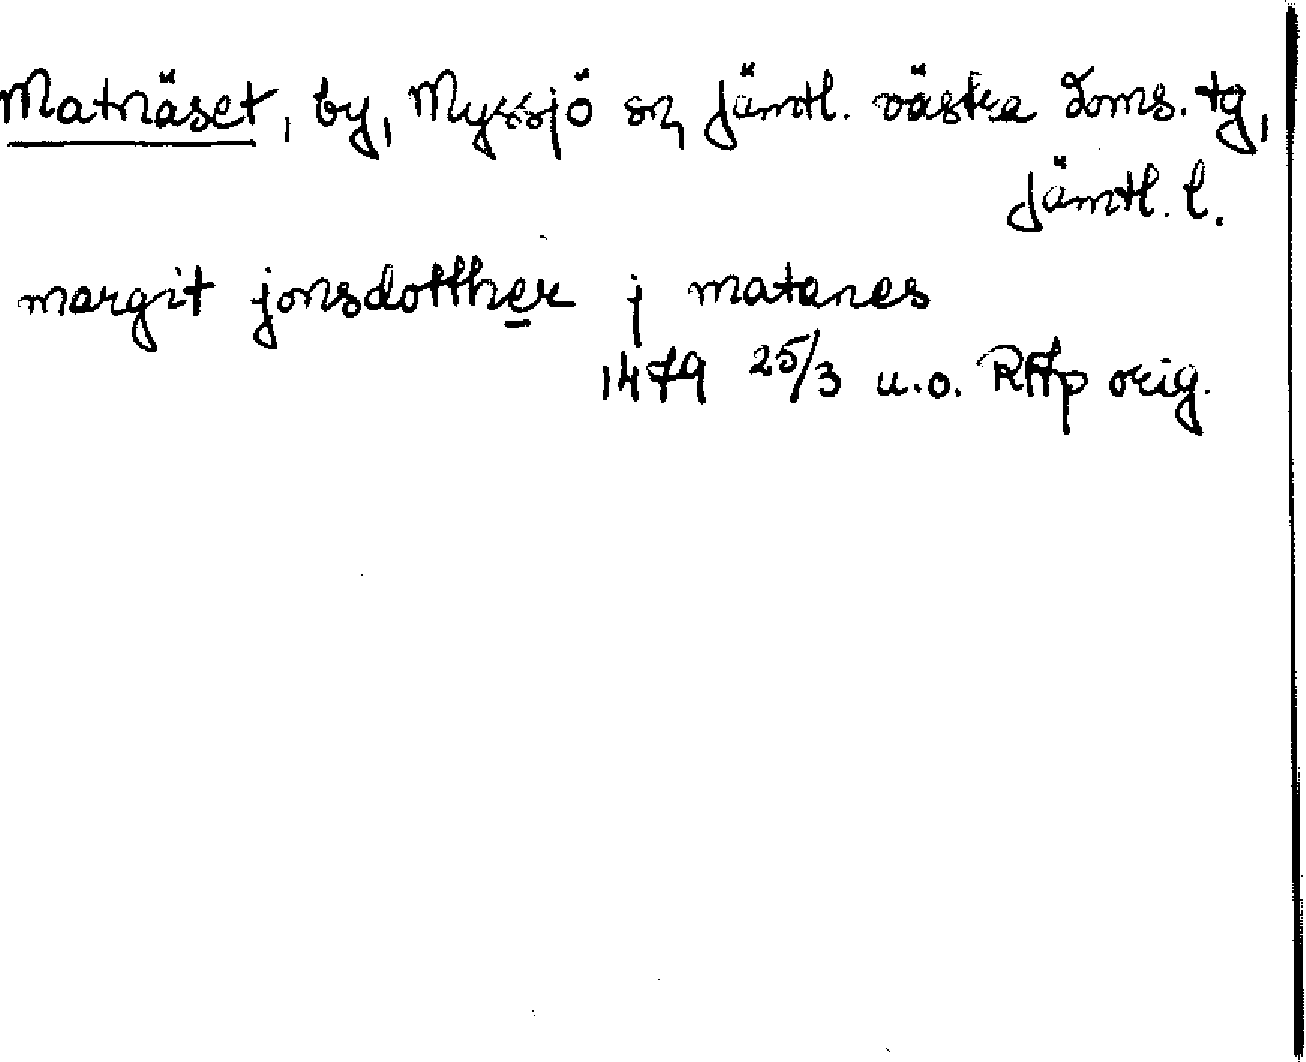 Matnäset, by, Myssjö sn, Jämtl. västra Doms. tg,
Jämtl. l.
margit jonsdotther j matanes
1479 25/3 u.o. RAp orig.